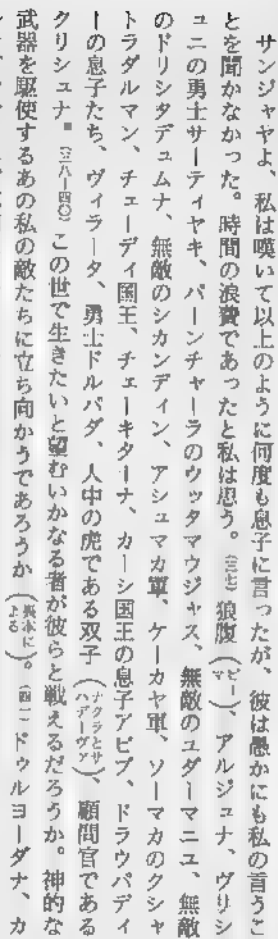 サンジャヤよ、私は嘆いて以上のように何度も息子に言ったが、彼は愚かにも私の言うこ
とを聞かなかった。時間の浪費であったと私は思う。(三七) 狼腹(ビーマ)、アルジュナ、ヴリシ
ュニの勇士サーティヤキ、パーンチャーラのウッタマウジャス、無敵のユダーマニユ、無敵
のドリシタデュムナ、無敵のシカンディン、アシュマカ軍、ケーカヤ軍、ソーマカのクシャ
トラダルマン、チェーディ国王、チェーキターナ、カーシ国王の息子アビブ、ドラウパディ
ーの息子たち、ヴィラータ、勇士ドルパダ、人中の虎である双子(ナクラとサハデーヴァ)、顧問官である
クリシュナ。(三八―四〇) この世で生きたいと望むいかなる者が彼らと戦えるだろうか。神的な
武器を駆使するあの私の敵たちに立ち向かうであろうか(異本による)。(四一) ドゥルヨーダナ、カ